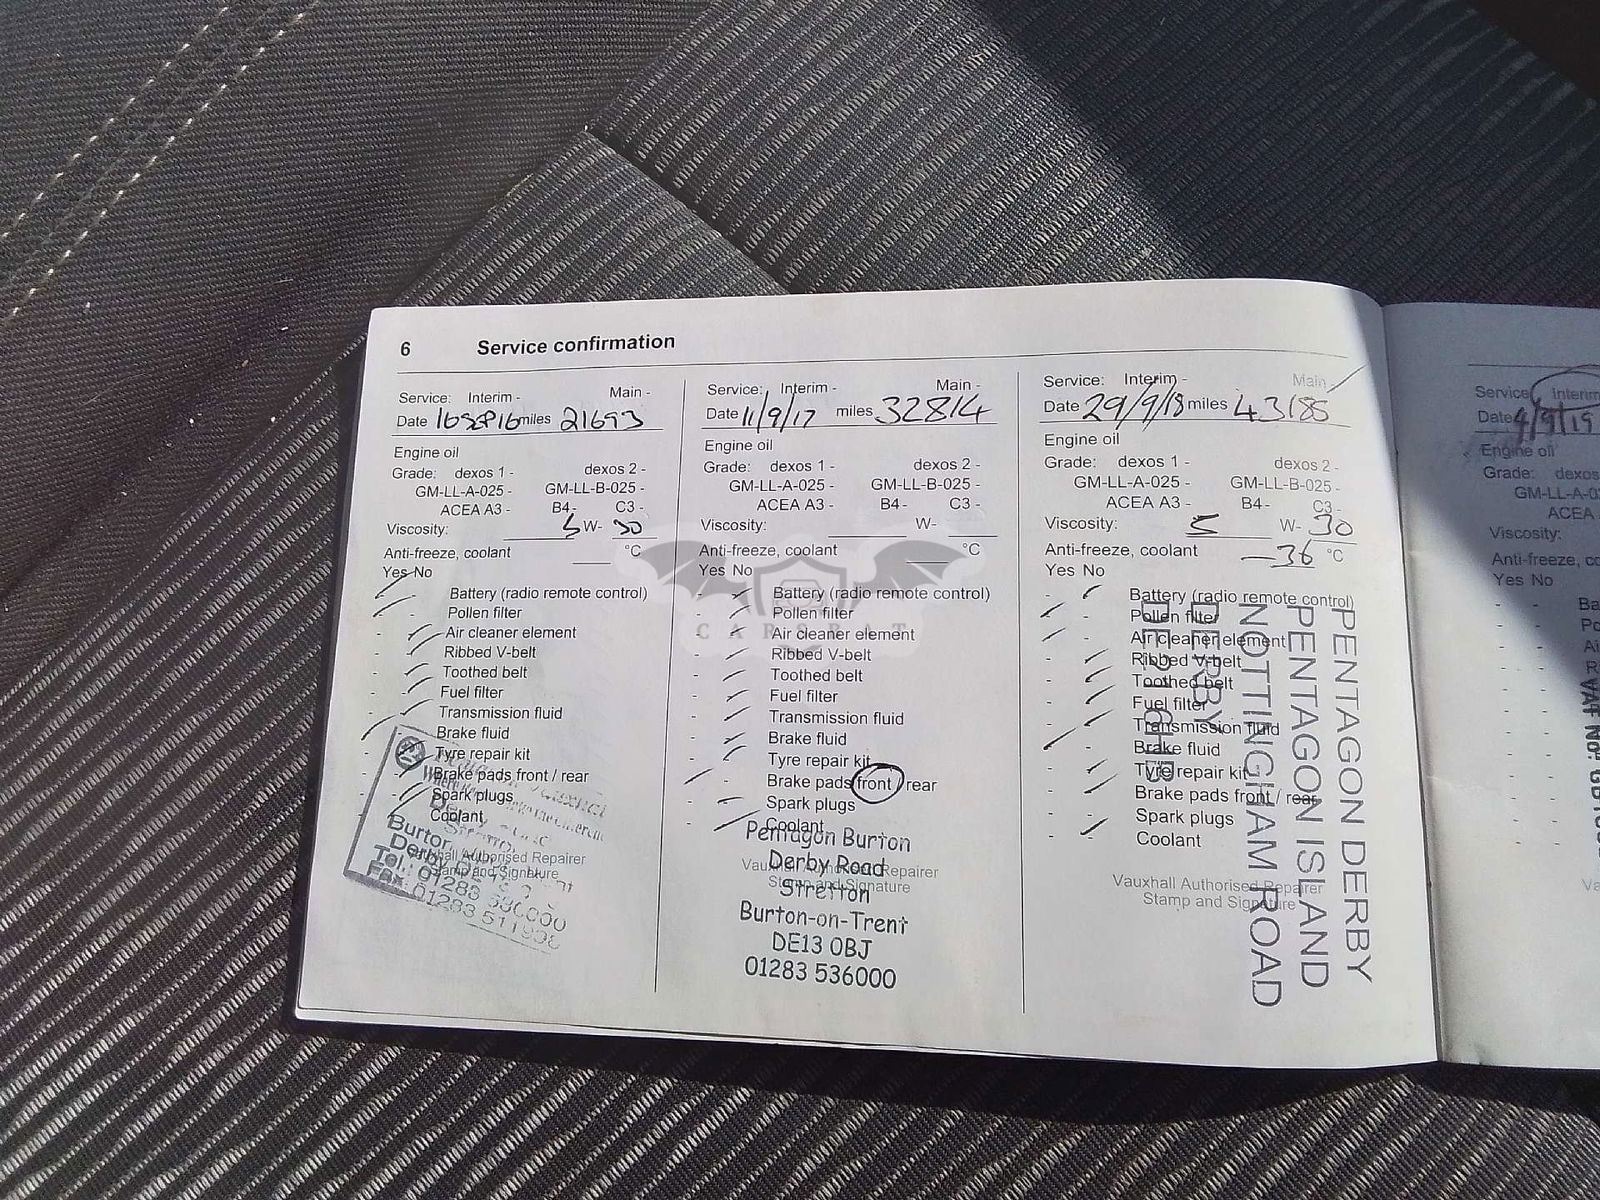 6 Service confirmation
Service: Interim - Main -
Date 16SEP16 miles 21693
Engine oil
Grade: dexos 1 - dexos 2 -
GM-LL-A-025 - GM-LL-B-025 -
ACEA A3 - B4- C3 -
Viscosity: 5 W- 30
Anti-freeze, coolant °C
Yes No
Battery (radio remote control)
- Pollen filter
- Air cleaner element
- Ribbed V-belt
- Toothed belt
- Fuel filter
- Transmission fluid
- Brake fluid
- Tyre repair kit
- Brake pads front / rear
- Spark plugs
- Coolant
Vauxhall Authorised Repairer
Stamp and Signature
Burton
Derby
Tel.: 01283 536000
Fax: 01283 511938
Service: Interim - Main -
Date 11/9/17 miles 32814
Engine oil
Grade: dexos 1 - dexos 2 -
GM-LL-A-025 - GM-LL-B-025 -
ACEA A3 - B4- C3 -
Viscosity: W-
Anti-freeze, coolant °C
Yes No
- Battery (radio remote control)
- Pollen filter
- Air cleaner element
- Ribbed V-belt
- Toothed belt
- Fuel filter
- Transmission fluid
- Brake fluid
- Tyre repair kit
- Brake pads front / rear
- Spark plugs
- Coolant
Vauxhall Authorised Repairer
Stamp and Signature
Pentagon Burton
Derby Road
Stretton
Burton-on-Trent
DE13 0BJ
01283 536000
Service: Interim - Main -
Date 29/9/18 miles 43185
Engine oil
Grade: dexos 1 - dexos 2 -
GM-LL-A-025 - GM-LL-B-025 -
ACEA A3 - B4- C3 -
Viscosity: 5 W- 30
Anti-freeze, coolant -36 °C
Yes No
- Battery (radio remote control)
- Pollen filter
- Air cleaner element
- Ribbed V-belt
- Toothed belt
- Fuel filter
- Transmission fluid
- Brake fluid
- Tyre repair kit
- Brake pads front / rear
- Spark plugs
- Coolant
Vauxhall Authorised Repairer
Stamp and Signature
PENTAGON DERBY
PENTAGON ISLAND
NOTTINGHAM ROAD
DERBY
CARSBAT
Service: Interim
Date 4/9/19
Engine oil
Grade: dexos
GM-LL-A-02
ACEA
Viscosity:
Anti-freeze, co
Yes No
Ba
Po
Ai
VAT No: GB